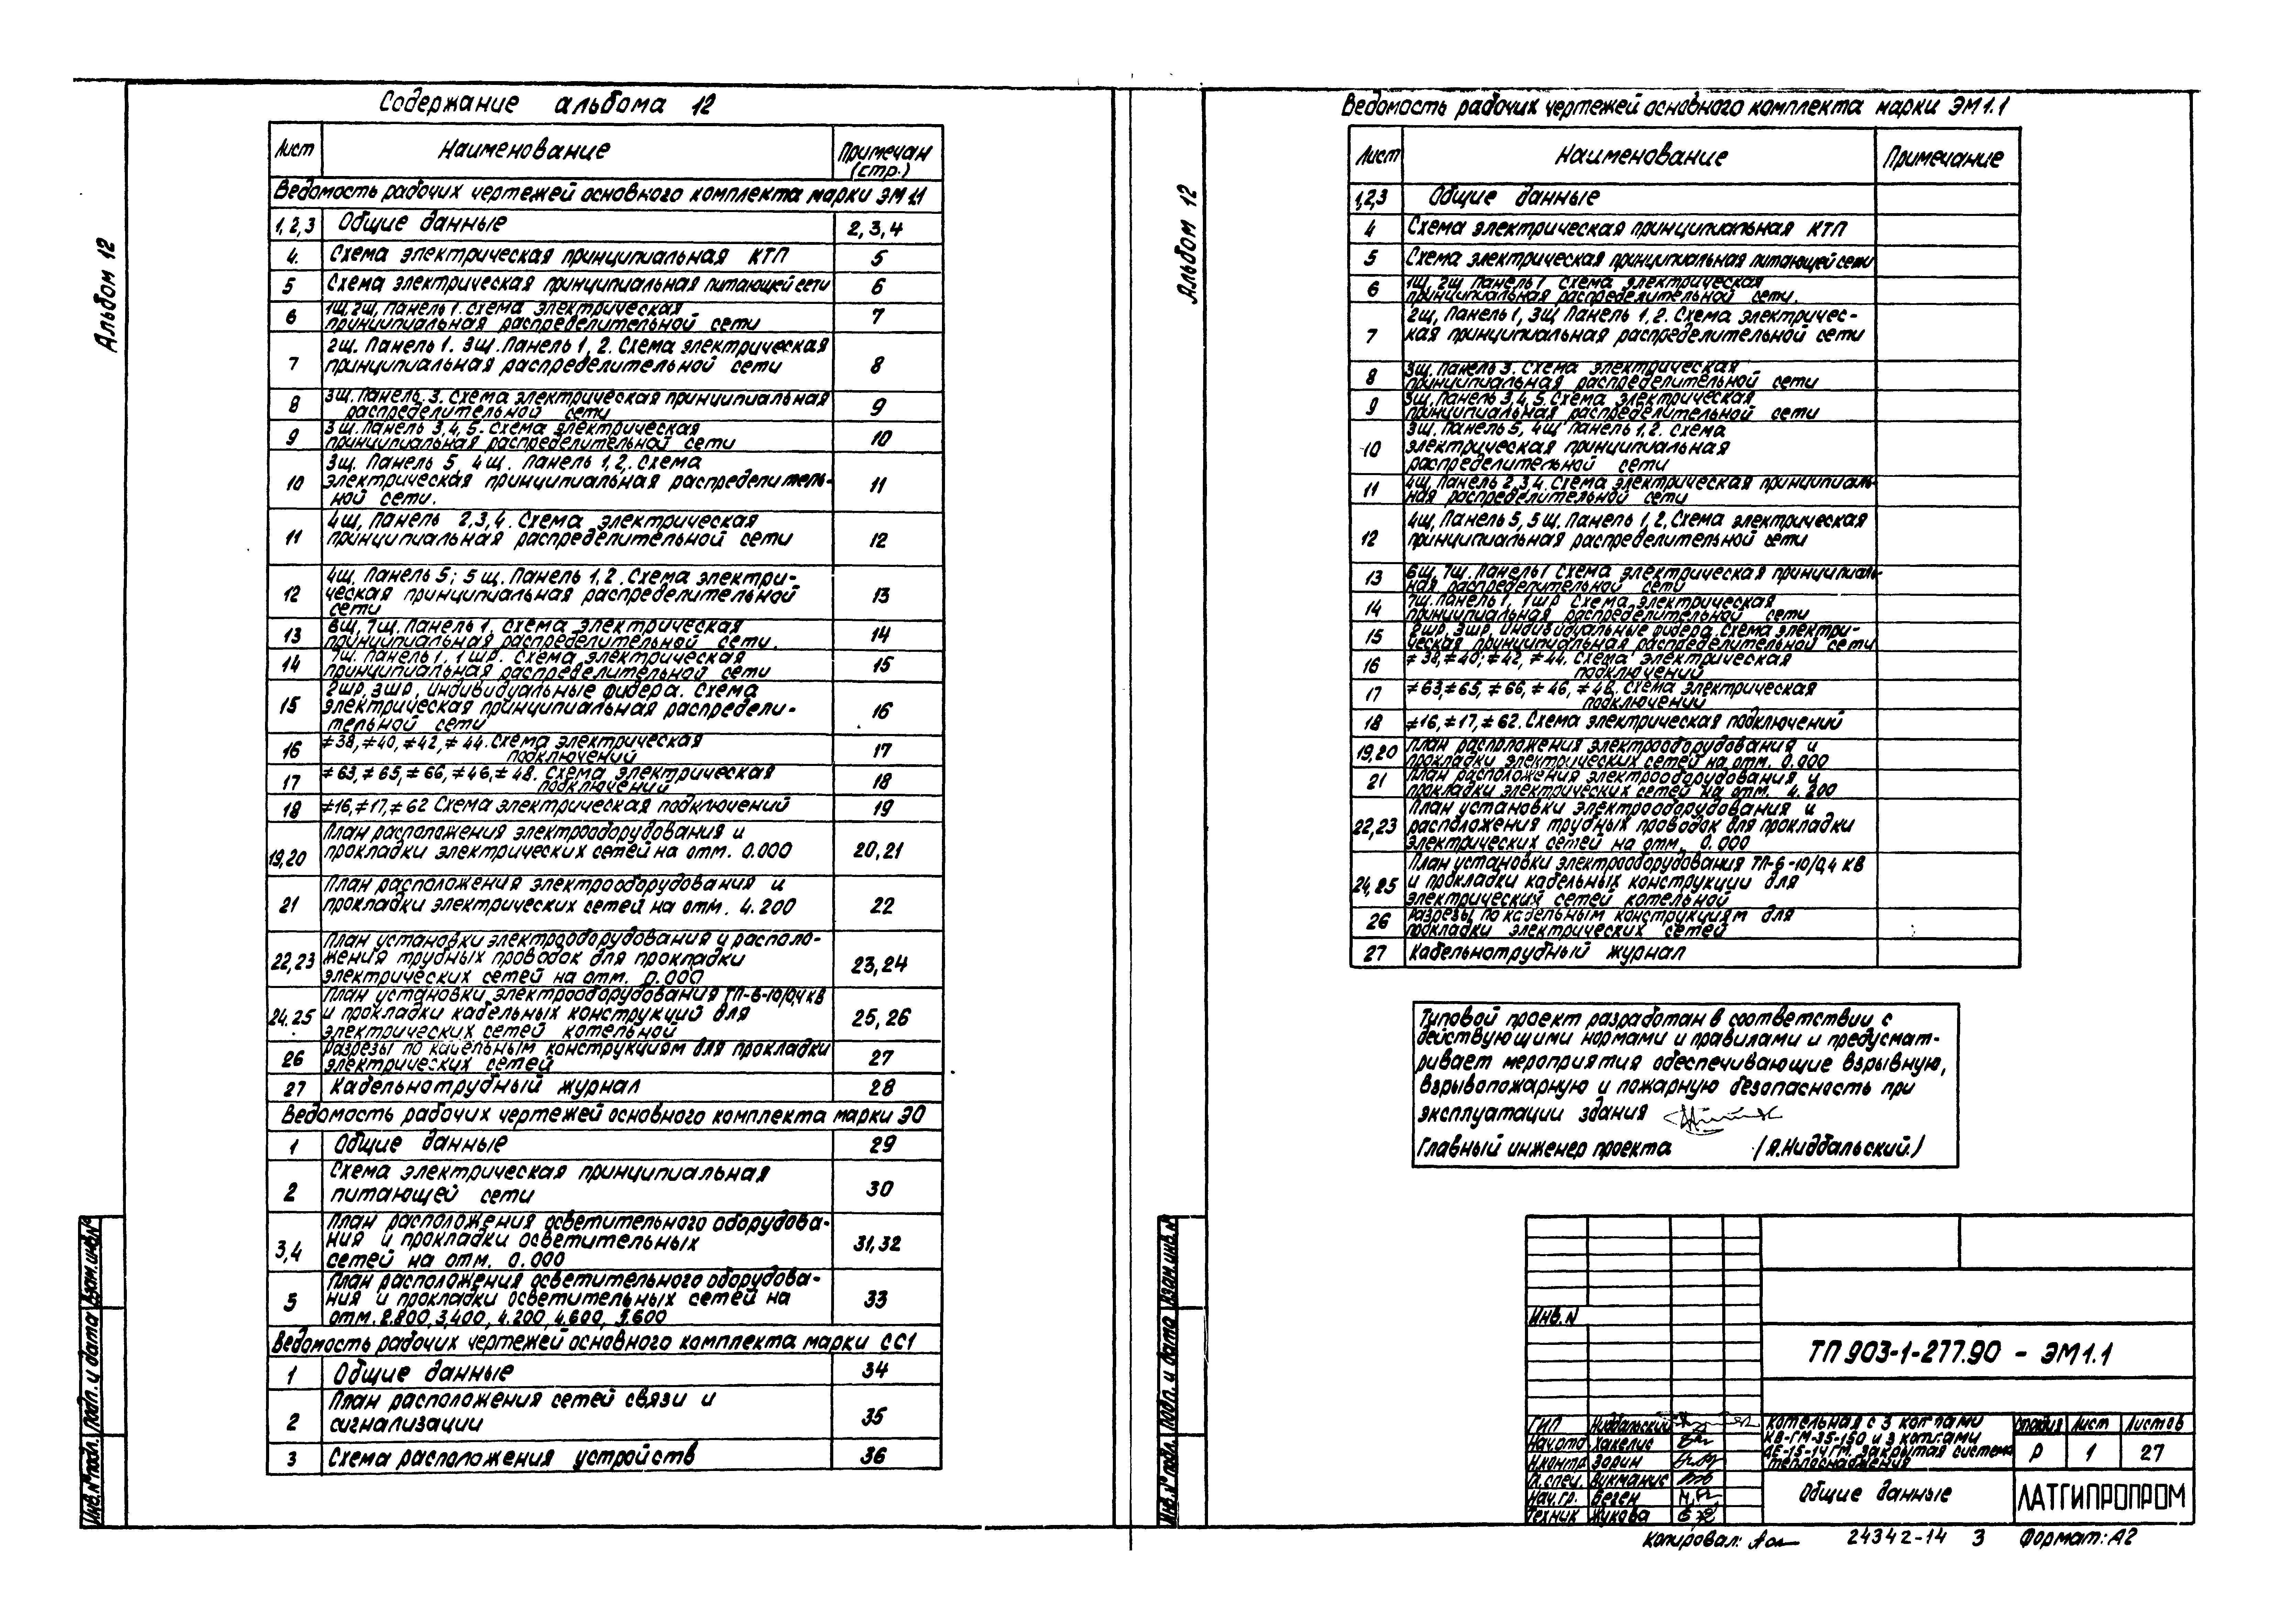 Альбом 12
Содержание альбома 12
Лист Наименование Примечан (стр.)
Ведомость рабочих чертежей основного комплекта марки ЭМ 1.1
1, 2, 3 Общие данные 2, 3, 4
4. Схема электрическая принципиальная КТП 5
5 Схема электрическая принципиальная питающей сети 6
6 1щ, 2щ, панель 1. Схема электрическая
принципиальная распределительной сети 7
7 2щ. Панель 1. 3щ. Панель 1, 2. Схема электрическая
принципиальная распределительной сети 8
8 3щ. Панель 3. Схема электрическая принципиальная
распределительной сети 9
9 3щ. Панель 3,4,5. Схема электрическая
принципиальная распределительной сети 10
10 3щ. Панель 5, 4щ. Панель 1,2. Схема
электрическая принципиальная распределитель-
ной сети. 11
11 4щ, Панель 2,3,4. Схема электрическая
принципиальная распределительной сети 12
12 4щ. Панель 5; 5щ. Панель 1,2. Схема электри-
ческая принципиальная распределительной
сети 13
13 6щ, 7щ. Панель 1. Схема электрическая
принципиальная распределительной сети. 14
14 7щ. Панель 1, 1шр. Схема электрическая
принципиальная распределительной сети 15
15 2шр, 3шр, индивидуальные фидера. Схема
электрическая принципиальная распредели-
тельной сети 16
16 ≠38, ≠40, ≠42, ≠44. Схема электрическая
подключений 17
17 ≠63, ≠65, ≠66, ≠46, ≠48. Схема электрическая
подключений 18
18 ≠16, ≠17, ≠62 Схема электрическая подключений 19
19,20 План расположения электрооборудования и
прокладки электрических сетей на отм. 0.000 20,21
21 План расположения электрооборудования и
прокладки электрических сетей на отм. 4.200 22
22,23 План установки электрооборудования и располо-
жения трубных проводок для прокладки
электрических сетей на отм. 0.000 23,24
24.25 План установки электрооборудования ТП-6-10/0,4 кв
и прокладки кабельных конструкций для
электрических сетей котельной 25, 26
26 Разрезы по кабельным конструкциям для прокладки
электрических сетей 27
27 Кабельнотрубный журнал 28
Ведомость рабочих чертежей основного комплекта марки ЭО
1 Общие данные 29
2 Схема электрическая принципиальная
питающей сети 30
3,4 План расположения осветительного оборудова-
ния и прокладки осветительных
сетей на отм. 0.000 31,32
5 План расположения осветительного оборудова-
ния и прокладки осветительных сетей на
отм. 2.800, 3,400, 4.200, 4.600, 5.600 33
Ведомость рабочих чертежей основного комплекта марки СС1
1 Общие данные 34
2 План расположения сетей связи и
сигнализации 35
3 Схема расположения устройств 36
Инв.№ подл. Подп. и дата Взам.инв.№
Альбом 12
Ведомость рабочих чертежей основного комплекта марки ЭМ 1.1
Лист Наименование Примечание
1,2,3 Общие данные
4 Схема электрическая принципиальная КТП
5 Схема электрическая принципиальная питающей сети
6 1щ, 2щ Панель 1 Схема электрическая
принципиальная распределительной сети.
7 2щ, Панель 1, 3щ Панель 1,2. Схема электричес-
кая принципиальная распределительной сети
8 3щ. Панель 3. Схема электрическая
принципиальная распределительной сети
9 3щ. Панель 3,4,5. Схема электрическая
принципиальная распределительной сети
10 3щ. Панель 5, 4щ Панель 1,2. Схема
электрическая принципиальная
распределительной сети
11 4щ, Панель 2,3,4. Схема электрическая принципиаль-
ная распределительной сети
12 4щ, Панель 5, 5щ. Панель 1,2, Схема электрическая
принципиальная распределительной сети
13 6щ, 7щ. Панель 1 Схема электрическая принципиаль-
ная распределительной сети
14 7щ. Панель 1, 1шр Схема электрическая
принципиальная распределительной сети
15 2шр, 3шр, индивидуальные фидера. Схема электри-
ческая принципиальная распределительной сети
16 ≠38, ≠40; ≠42, ≠44. Схема электрическая
подключений
17 ≠63, ≠65, ≠66, ≠46, ≠48. Схема электрическая
подключений
18 ≠16, ≠17, ≠62. Схема электрическая подключений
19,20 План расположения электрооборудования и
прокладки электрических сетей на отм. 0.000
21 План расположения электрооборудования и
прокладки электрических сетей на отм. 4.200
22,23 План установки электрооборудования и
расположения трубных проводок для прокладки
электрических сетей на отм. 0.000
24,25 План установки электрооборудования ТП-6-10/0,4 кв
и прокладки кабельных конструкции для
электрических сетей котельной
26 Разрезы по кабельным конструкциям для
прокладки электрических сетей
27 Кабельнотрубный журнал
Типовой проект разработан в соответствии с
действующими нормами и правилами и предусмат-
ривает мероприятия обеспечивающие взрывную,
взрывопожарную и пожарную безопасность при
эксплуатации здания
Главный инженер проекта (Я.Нидбальский.)
Инв.№ подл. Подп. и дата Взам.инв.№
Инв.N
ТП 903-1-277.90 - ЭМ 1.1
ГИП Нидбальский
Нач.отд Хакелис
Н.контр Зорин
Гл.спец. Викманис
Нач.гр. Беген
Техник Жукова
Котельная с 3 котлами
КВ-ГМ-35-150 и 3 котлами
ДЕ-15-14ГМ. Закрытая система
теплоснабжения
Стадия Лист Листов
Р 1 27
Общие данные
ЛАТГИПРОПРОМ
Копировал: 24342-14 3 Формат: А2